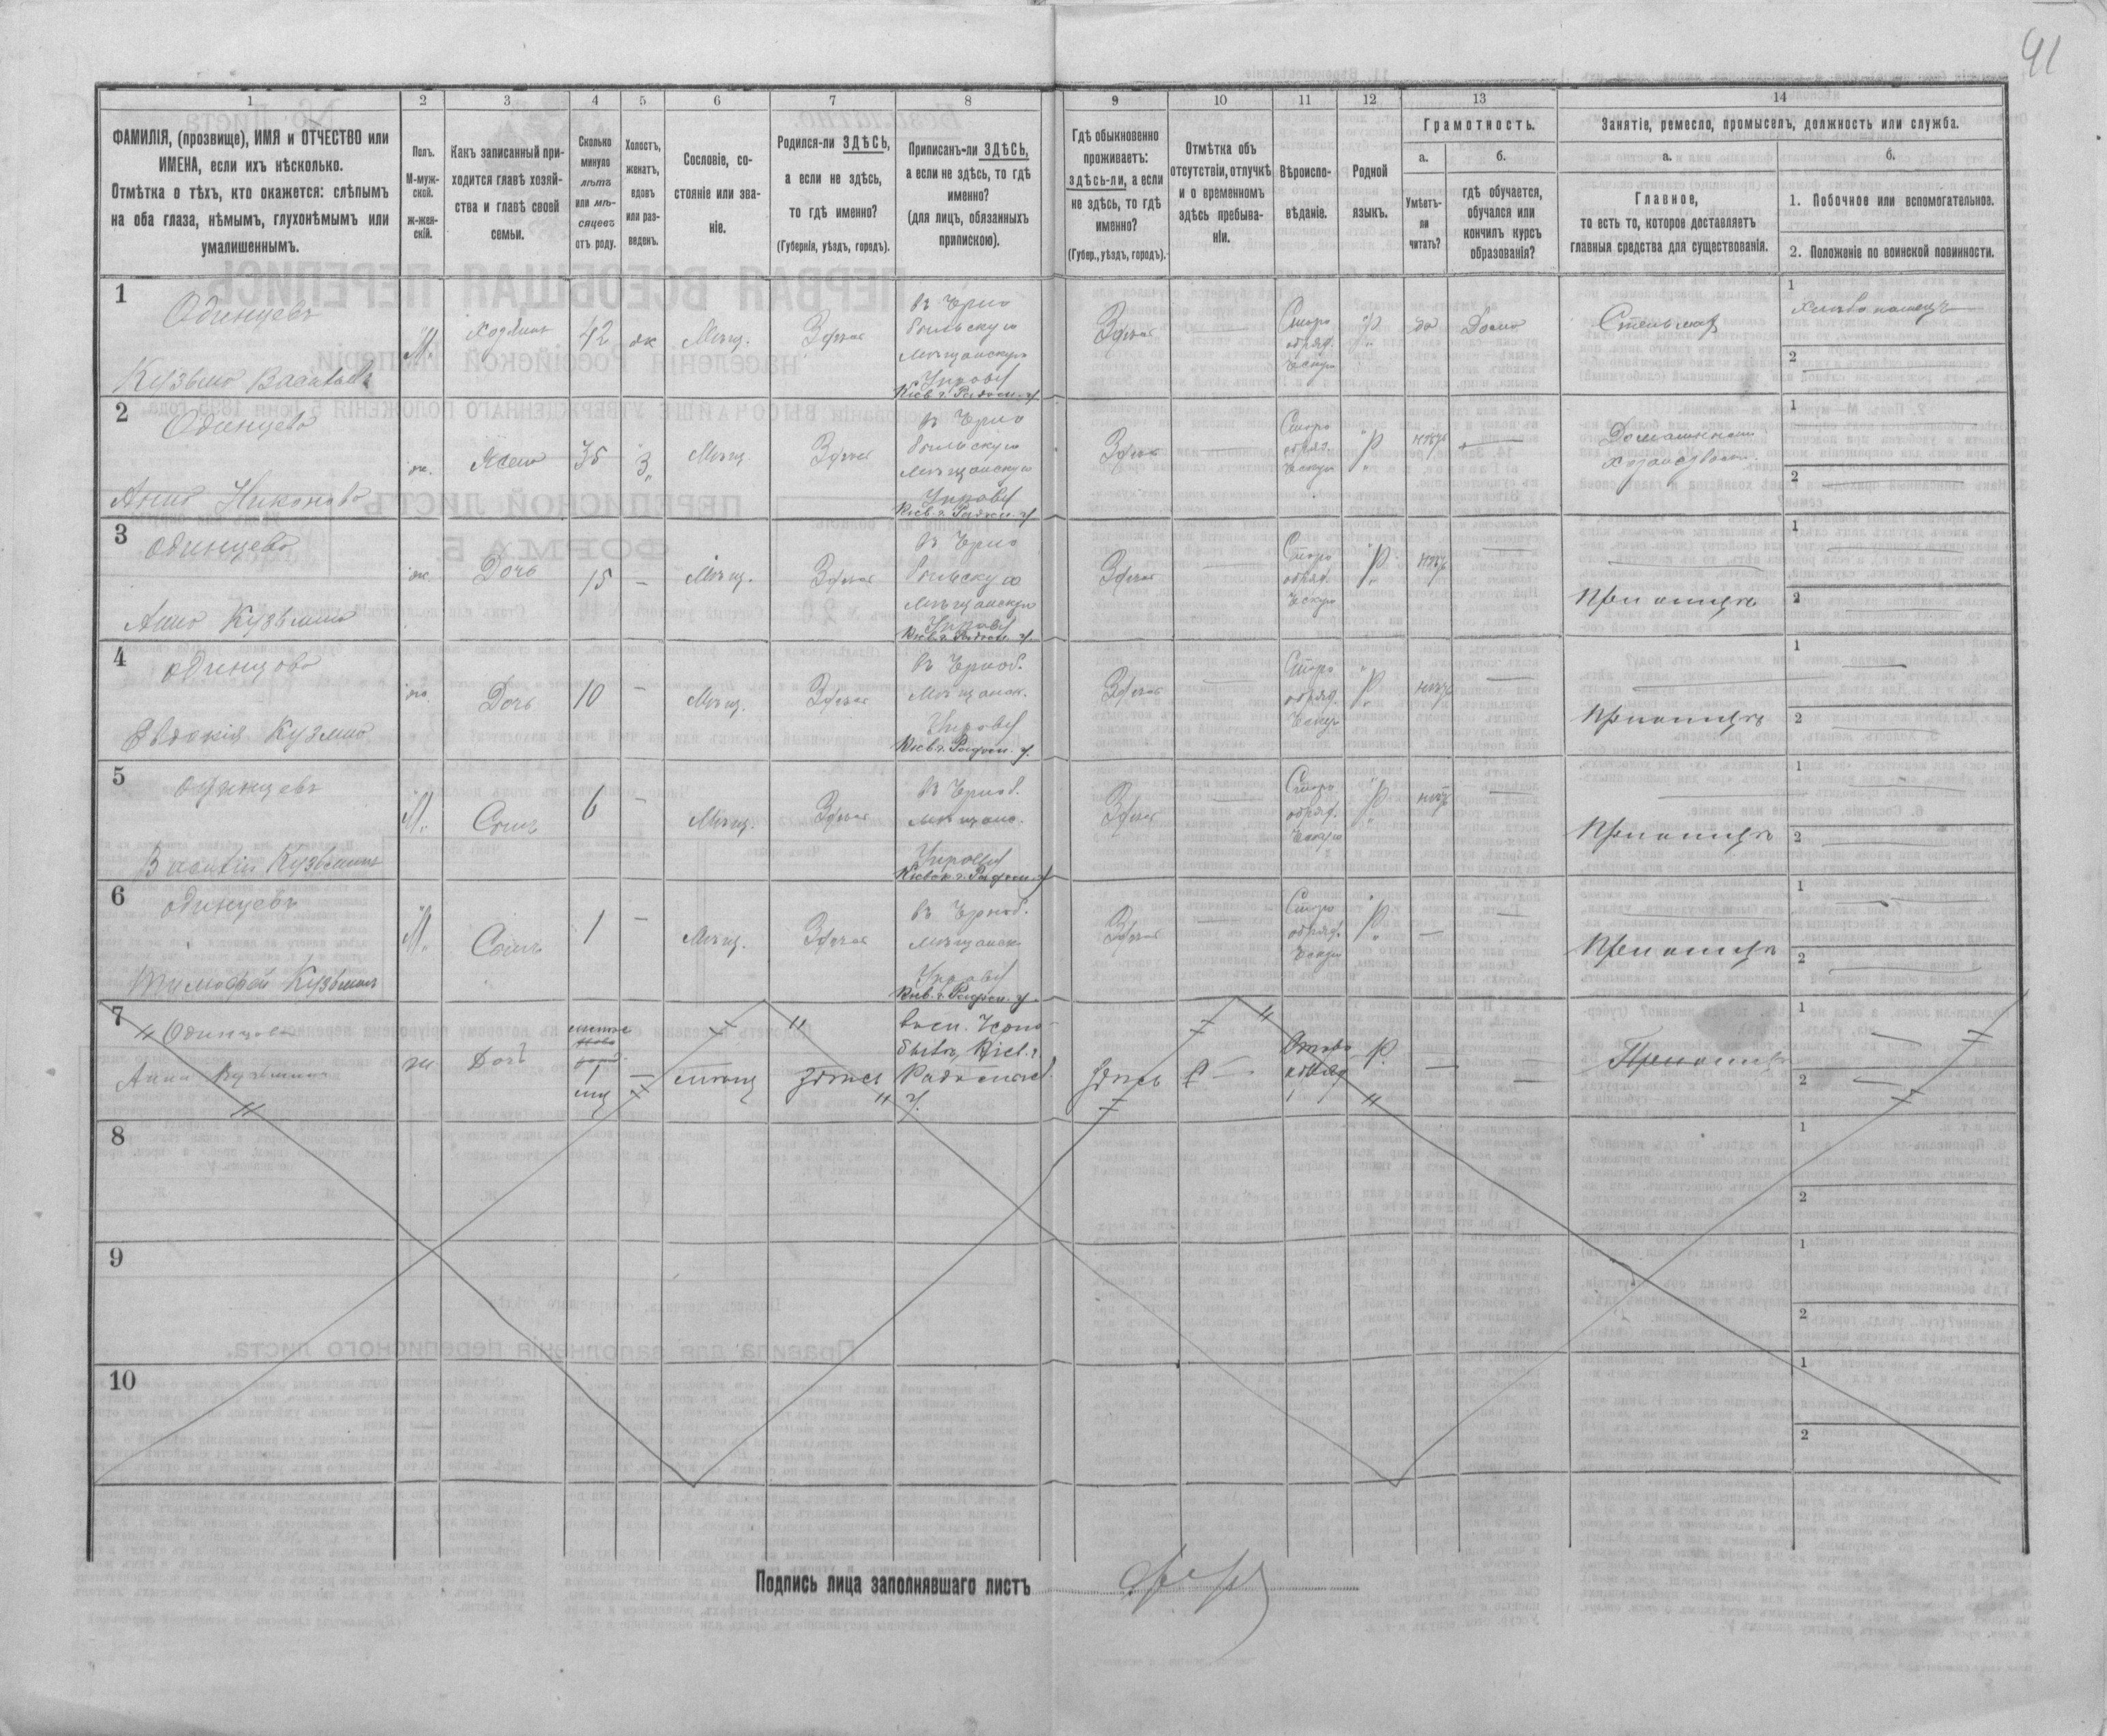 91
1 2 3 4 5 6 7 8 9 10 11 12 13 14
ФАМИЛІЯ, (прозвище), ИМЯ и ОТЧЕСТВО или
ИМЕНА, если ихъ нѣсколько.
Отмѣтка о тѣхъ, кто окажется: слѣпымъ
на оба глаза, нѣмымъ, глухонѣмымъ или
умалишеннымъ.
Полъ.
М-муж-
ской.
ж-жен-
скій.
Какъ записанный при-
ходится главѣ хозяй-
ства и главѣ своей
семьи.
Сколько
минуло
лѣтъ
или мѣ-
сяцевъ
отъ роду.
Холостъ,
женатъ,
вдовъ
или раз-
веденъ.
Сословіе, со-
стояніе или зва-
ніе.
Родился-ли ЗДѢСЬ,
а если не здѣсь,
то гдѣ именно?
(Губернія, уѣздъ, городъ).
Приписанъ-ли ЗДѢСЬ,
а если не здѣсь, то гдѣ
именно?
(для лицъ, обязанныхъ
припискою).
Гдѣ обыкновенно
проживаетъ:
здѣсь-ли, а если
не здѣсь, то гдѣ
именно?
(Губер., уѣздъ, городъ).
Отмѣтка объ
отсутствіи, отлучкѣ
и о временномъ
здѣсь пребыва-
ніи.
Вѣроиспо-
вѣданіе.
Родной
языкъ.
Грамотность.
а.
Умѣетъ-
ли
читать?
б.
гдѣ обучается,
обучался или
кончилъ курсъ
образованія?
Занятіе, ремесло, промыселъ, должность или служба.
а.
Главное,
то есть то, которое доставляетъ
главныя средства для существованія.
б.
1. Побочное или вспомогательное.
2. Положеніе по воинской повинности.
1
Одинцевъ
Кузьма Васильевъ
М. Хозяинъ 42 ж Мѣщ. Здѣсь
въ Черно
быльскую
мѣщанскую
Управу
Кіев. г. Радом. у.
Здѣсь —
Старо
обряд.
ческую
р. да Дома
1
2 —
2
Одинцева
Анна Никонова
ж. Жена 35 з. Мѣщ. Здѣсь
въ Черно
быльскую
мѣщанскую
Управу
Кіев. г. Радом. у.
Здѣсь —
Старо
обряд.
ческую
р. нѣтъ —
Домашнимъ
хозяйствомъ.
1
2
3
Одинцева
Анна Кузьмина
ж. Дочь 15 — Мѣщ. Здѣсь
въ Черно
быльскую
мѣщанскую
Управу
Кіев. г. Радом. у.
Здѣсь
Старо
обряд.
ческую
р. нѣтъ —
При отцѣ
1 —
2 —
4
Одинцова
Евдокія Кузмина
ж. Дочь 10 — Мѣщ. Здѣсь
въ Черноб.
Мѣщанск.
Управу
Кіев. г. Радом. у.
Здѣсь —
Старо
обряд.
ческую
р. нѣтъ —
При отцѣ
1 —
2 —
5
Одинцевъ
Василій Кузьминъ
М. Сынъ 6 — Мѣщ. Здѣсь
въ Черноб.
мѣщанс.
Управу
Кіевск. г. Радом. у.
Здѣсь —
Старо
обряд.
ческую
р. нѣтъ —
При отцѣ
1 —
2 —
6
Одинцевъ
Тимофей Кузьминъ
М. Сынъ 1 — Мѣщ. Здѣсь
въ Черноб.
мѣщанск
Управу
Кіев. г. Радом. у.
Здѣсь —
Старо
обряд.
ческую
р. — —
При отцѣ
1 —
2 —
7
Одинцова
Анна Кузьмина
ж. Дочь
1
— мѣщ Здѣсь
Черно-
быль, Кіев. г.
Радомысл.
у.
Здѣсь —
Старо
обряд
р. — —
При отцѣ
1 —
2 —
8
1
2
9
1
2
10
1
2
Подпись лица заполнявшаго листъ